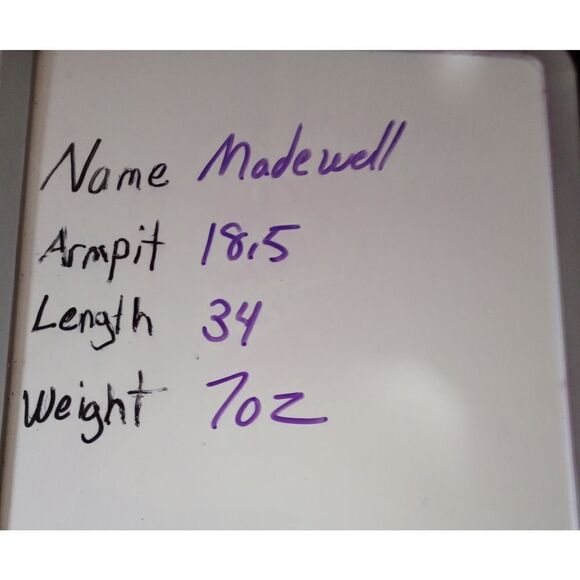 Name Madewell
Armpit 18.5
Length 34
Weight 7oz